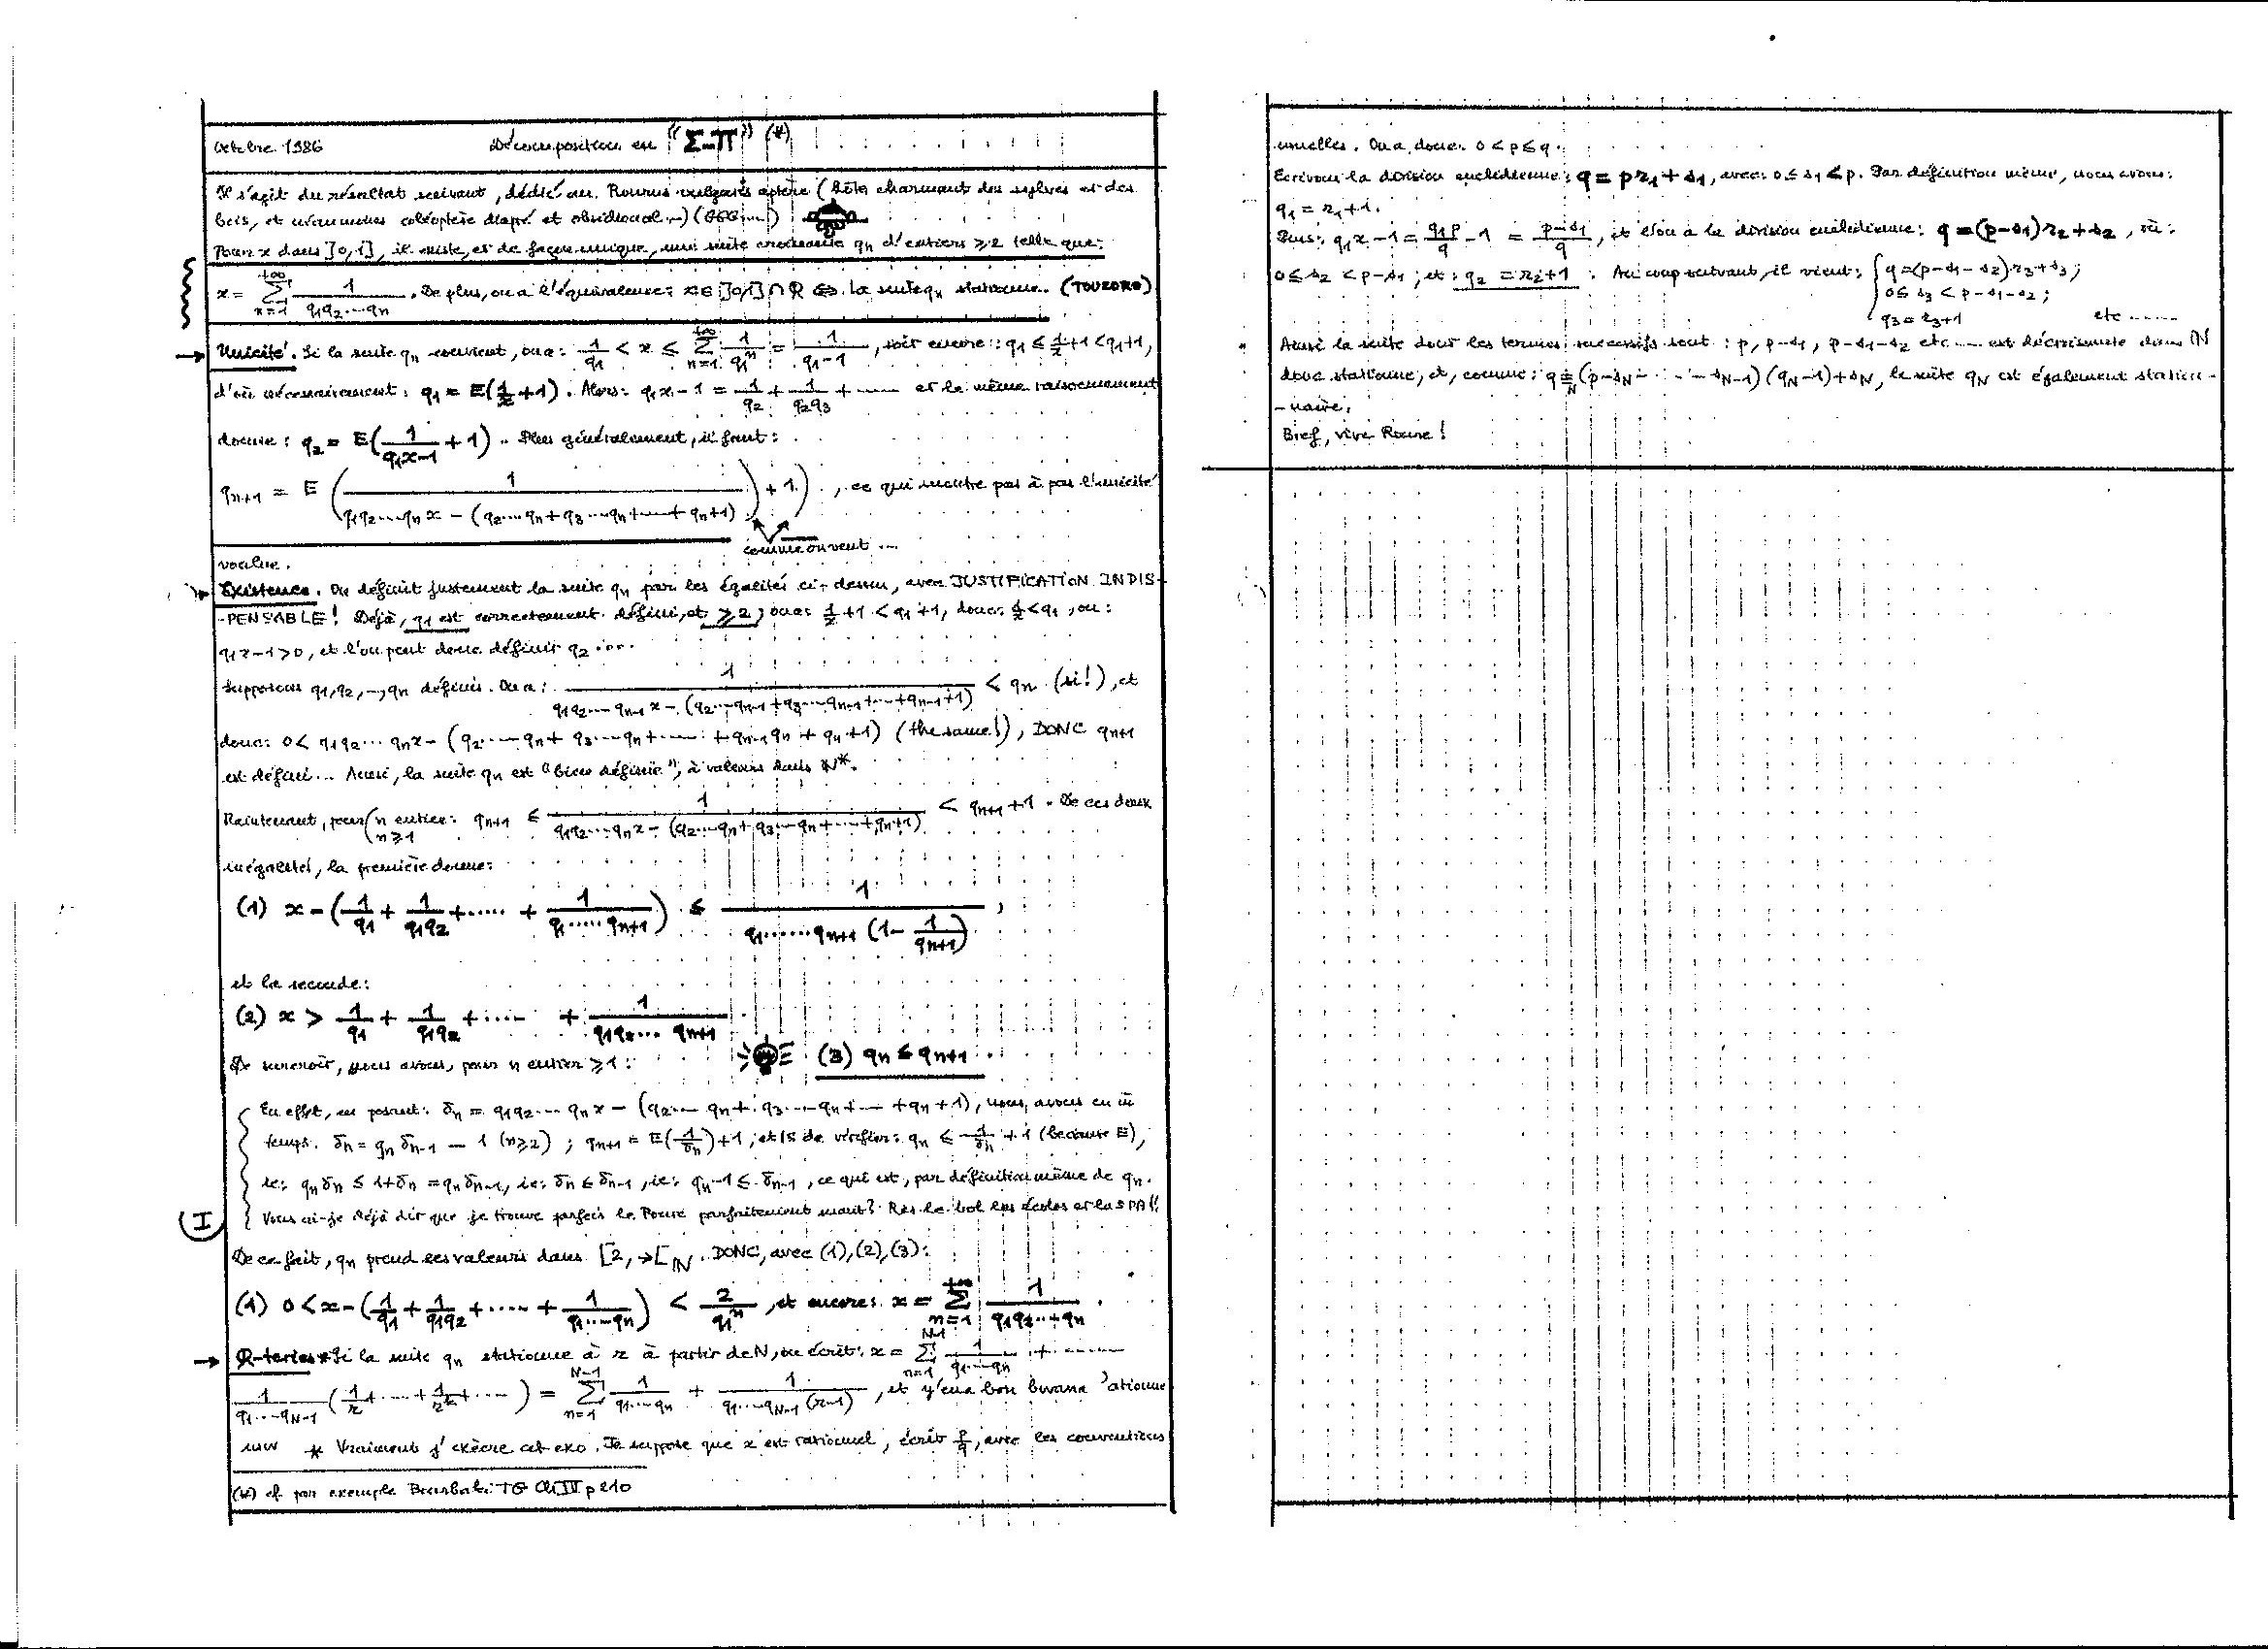 Octobre 1986 Décomposition en "Σ-Π" (*)
Il s'agit du résultat suivant, dédié au Rourus vulgaris aptère (hôte charmant des sylves et des
bois, et néanmoins coléoptère diapré et obsidional...)
Pour x dans ]0,1], il existe, et de façon unique, une suite croissante qn d'entiers ≥2 telle que:
x = Σ_{n=1}^{+∞} 1/(q1q2...qn). De plus, on a l'équivalence: x∈]0,1]∩Q ⇔ la suite qn stationne. (TOUZORO)
→ Unicité. Si la suite qn convient, on a: 1/q1 < x ≤ Σ_{n=1}^{+∞} 1/q1^n = 1/(q1-1), soit encore: q1 ≤ 1/x+1 < q1+1,
d'où nécessairement: q1 = E(1/x+1). Alors: q1x-1 = 1/q2 + 1/(q2q3) + ...... et le même raisonnement
donne: q2 = E(1/(q1x-1) + 1). Plus généralement, il faut:
qn+1 = E(1/(q1q2...qn x - (q2...qn+q3...qn+...+qn+1)) + 1), ce qui montre pas à pas l'unicité
comme on veut ...
voulue.
→ Existence. On définit justement la suite qn par les égalités ci-dessus, avec JUSTIFICATION INDIS-
-PENSABLE! Déjà, q1 est correctement défini, et ≥2; on a: 1/x+1 < q1+1, donc: 1/x<q1, ou:
q1x-1>0, et l'on peut donc définir q2 ....
Supposons q1,q2,...,qn définis. On a: 1/(q1q2...qn-1 x - (q2...qn-1+q3...qn-1+...+qn-1+1)) < qn (si!), et
donc: 0 < q1q2...qn x - (q2...qn+ q3...qn+...... + qn-1qn + qn+1) (the same!), DONC qn+1
est défini... Ainsi, la suite qn est "bien définie", à valeurs dans N*.
Maintenant, pour (n entier: n≥1 qn+1 ≤ 1/(q1q2...qn x - (q2...qn+q3...qn+...+qn+1)) < qn+1+1. De ces deux
inégalités, la première donne:
(1) x - (1/q1 + 1/(q1q2) +..... + 1/(q1.....qn+1)) ≤ 1/(q1......qn+1 (1 - 1/qn+1)),
et la seconde:
(2) x > 1/q1 + 1/(q1q2) + .... + 1/(q1q2... qn+1)
De surcroît, nous avons, pour n entier ≥1: (3) qn ≤ qn+1.
En effet, en posant: δn = q1q2...qn x - (q2...qn+q3...qn+...+qn+1), nous avons en m̄
temps. δn = qn δn-1 - 1 (n≥2); qn+1 = E(1/δn)+1, et IS de vérifier: qn ≤ 1/δn + 1 (because E),
ie: qn δn ≤ 1+δn = qn δn-1, ie: δn ≤ δn-1, ie: qn-1 ≤ δn-1, ce qui est, par définition même de qn.
Vous ai-je déjà dit que je trouve parfois le Roure parfaitement Ras le bol les écoles et la SPA!!
(I)
De ce fait, qn prend ses valeurs dans [2,→[N. DONC, avec (1),(2),(3):
(1) 0 < x - (1/q1 + 1/(q1q2) + ..... + 1/(q1...qn)) < 2/q1^n, et encore: x = Σ_{n=1}^{+∞} 1/(q1q2...+qn).
→ Q-teries * Si la suite qn stationne à r à partir de N, on écrit: x = Σ_{n=1}^{N-1} 1/(q1...qn) + ......
1/(q1...qN-1) (1/r+...+1/r^k+...) = Σ_{n=1}^{N-1} 1/(q1...qn) + 1/(q1...qN-1 (r-1)), et y'en a bon bwana 'ationne
* Vraiment j'exècre cet exo. Je suppose que x est rationnel, écrit p/q, avec les conventions
(*) cf par exemple Bourbaki TG Ch IV p 210
usuelles. On a donc: 0 < p ≤ q.
Ecrivons la division euclidienne: q = p r1 + s1, avec: 0 ≤ s1 < p. Par définition même, nous avons:
q1 = r1+1.
Puis: q1x-1 = q1p/q - 1 = (p-s1)/q, et l'on a la division euclidienne: q = (p-s1) r2 + s2, où:
0 ≤ s2 < p-s1; et: q2 = r2+1. Au coup suivant, il vient: { q = (p-s1-s2) r3 + s3;
0 ≤ s3 < p-s1-s2;
q3 = r3+1 etc ......
Ainsi la suite dont les termes successifs sont: p, p-s1, p-s1-s2 etc..... est décroissante dans N
donc stationne, et, comme: q =_N (p-sN-...-sN-1) (qN-1)+sN, la suite qN est également station-
-naire.
Bref, vive Roure!